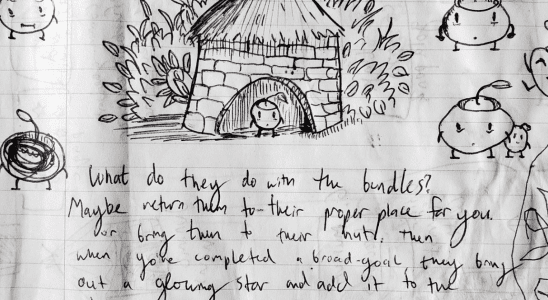 What do they do with the bundles?
Maybe return them to their proper place for you.
or bring them to their huts, then
when you've completed a broad-goal they bring
out a glowing star and add it to the